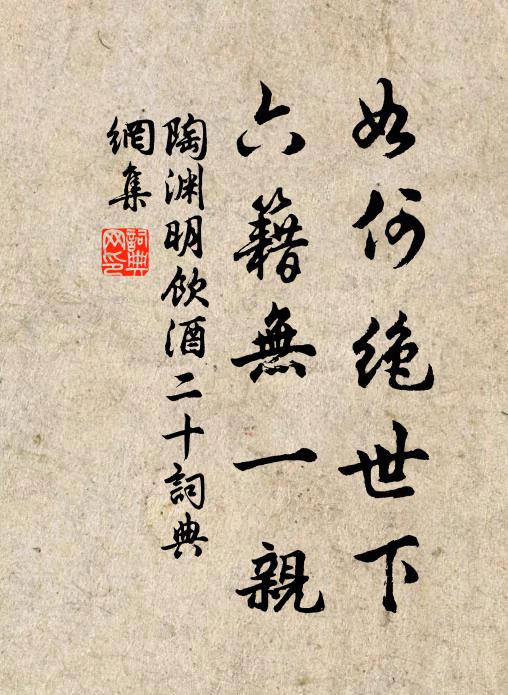 如何絶世下
六籍無一親
陶渊明飲酒二十詞典
網集
詞典
网印